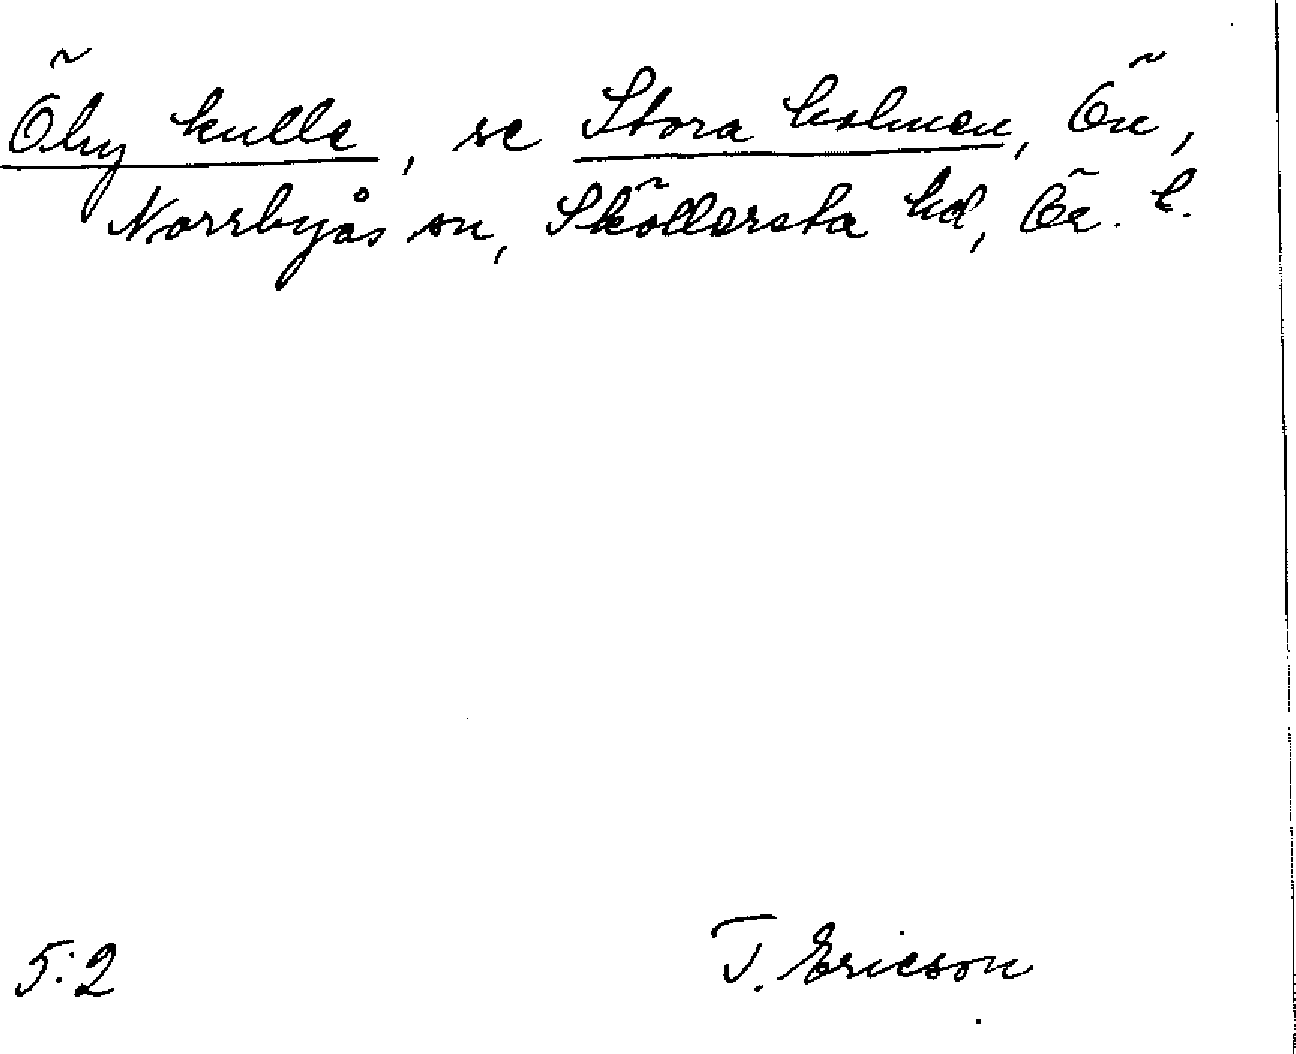 Öby kulle, se Stora holmen, Ön,
Norrbyås sn, Sköllersta hd, Ör. l.
5:2
T. Ericson